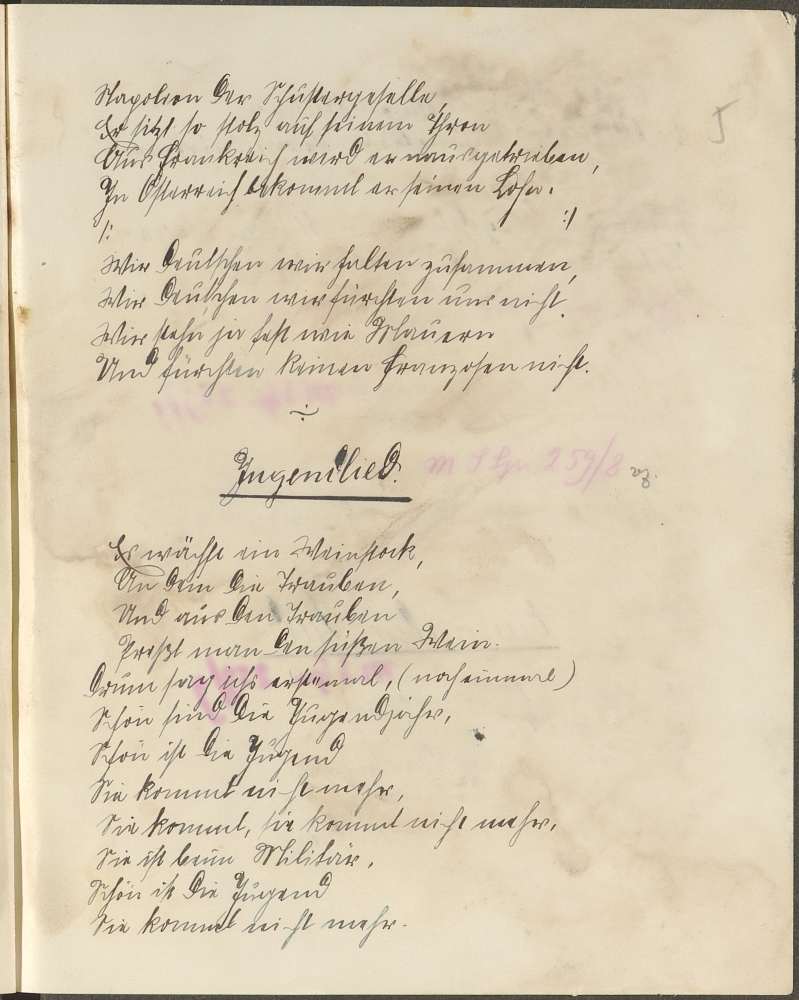 Napolion der Schustergeselle,
Er sitzt so stolz auf seinem Thron
Aus Frankreich wird er nausgetrieben,
In Österreich bekommt er seinen Lohn.
/: :/
Wir Deutschen wir halten zusammen,
Wir Deutschen wir fürchten uns nicht.
Wir stehn ja fest wie Mauern
Und fürchten keinen Franzosen nicht.
Jugendlied.
259/8
Es wächst ein Weinstock,
An dem die Trauben,
Und aus den Trauben
Preßt man den süßen Wein.
Drum sag ichs erstemal, (nocheinmal)
Schön sind die Jugendjahr,
Schön ist die Jugend
Sie kommt nicht mehr,
Sie kommt, sie kommt nicht mehr,
Sie ist beim Militär,
Schön ist die Jugend
Sie kommt nicht mehr.